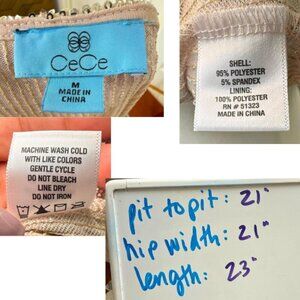 CeCe
M
MADE IN
CHINA
SHELL:
95% POLYESTER
5% SPANDEX
LINING:
100% POLYESTER
RN # 51323
MADE IN CHINA
MACHINE WASH COLD
WITH LIKE COLORS
GENTLE CYCLE
DO NOT BLEACH
LINE DRY
DO NOT IRON
pit to pit: 21"
hip width: 21"
length: 23"